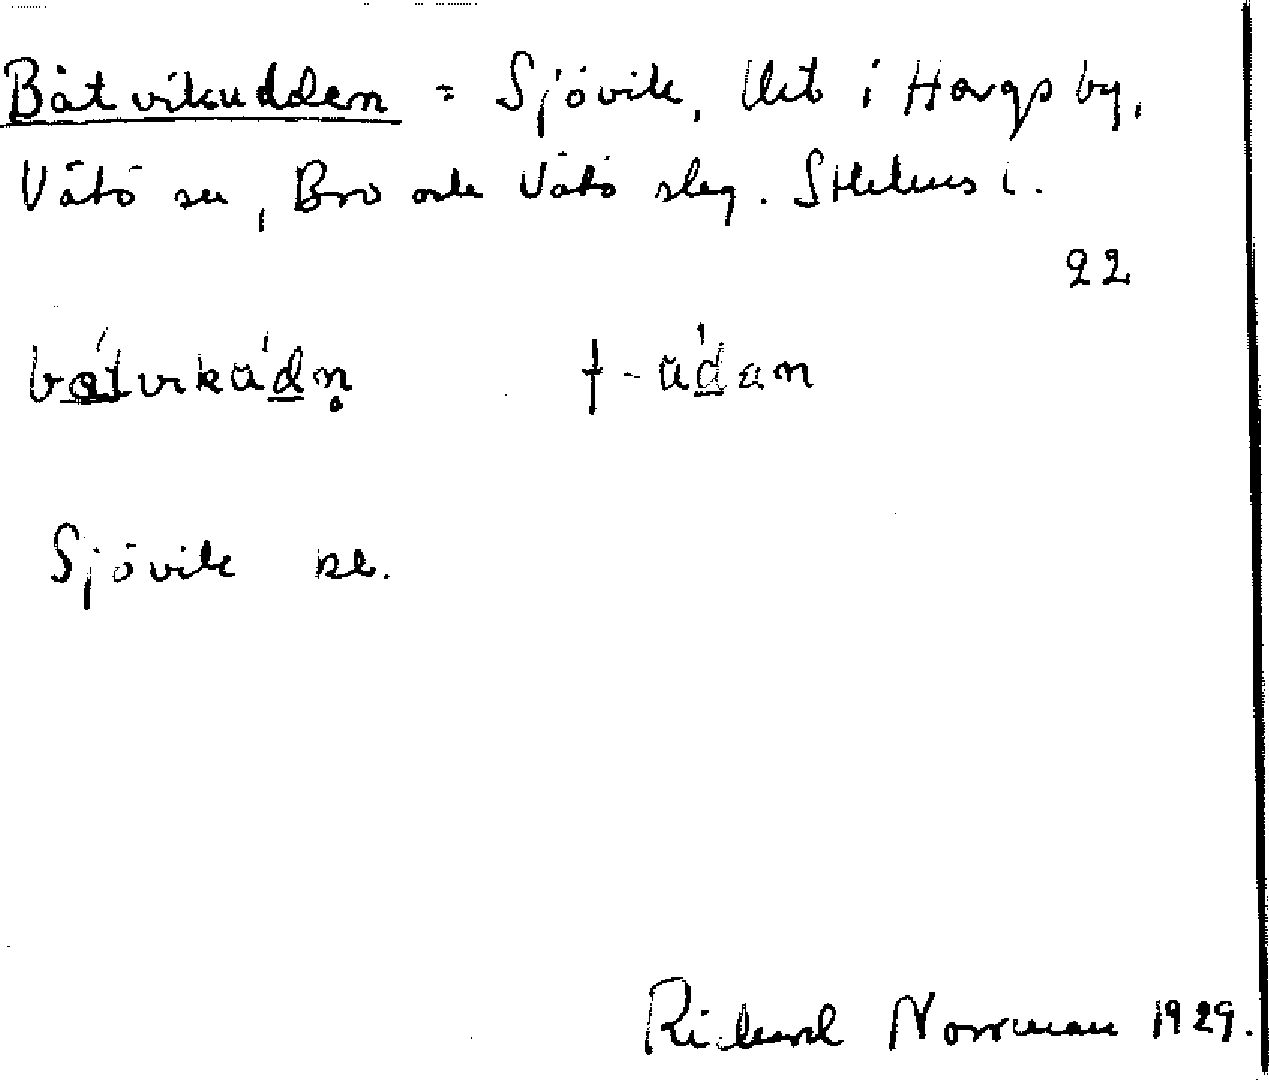 Båtvikudden = Sjövik, lht i Hargs by,
Vätö sn, Bro och Vätö slag. Sthlms l.
22
båtvikúdn̥ † -údan
Sjövik kk.
Richard Norrman 1929.